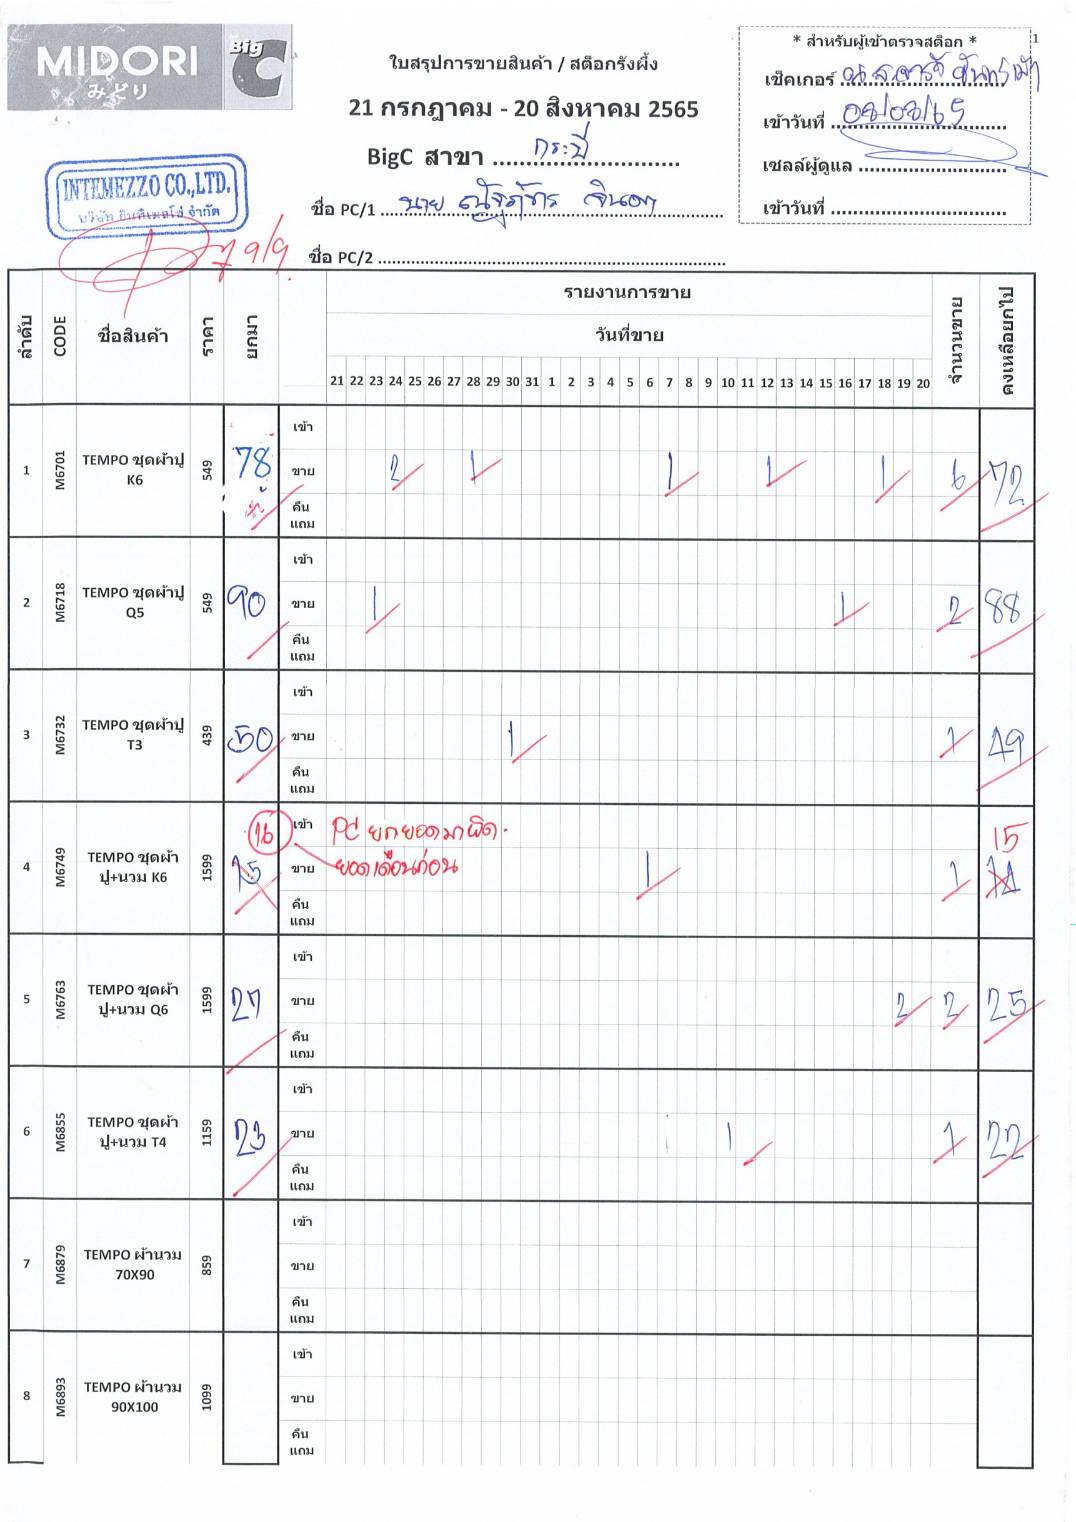 MIDORI
みどり
Big C
ใบสรุปการขายสินค้า / สต็อกรังผึ้ง
21 กรกฎาคม - 20 สิงหาคม 2565
BigC สาขา กระบี่
ชื่อ PC/1 นาย
ชื่อ PC/2
* สำหรับผู้เข้าตรวจสต็อก *
1
เช็คเกอร์ น.ส.
เข้าวันที่
เซลล์ผู้ดูแล
เข้าวันที่
INTEMEZZO CO.,LTD.
บริษัท อินทิเมสโซ่ จำกัด
9/9
ลำดับ CODE ชื่อสินค้า ราคา ยกมา รายงานการขาย จำนวนขาย คงเหลือยกไป
วันที่ขาย
21 22 23 24 25 26 27 28 29 30 31 1 2 3 4 5 6 7 8 9 10 11 12 13 14 15 16 17 18 19 20
เข้า
1 M6701 TEMPO ชุดผ้าปู K6 549 78 ขาย 2 1 1 1 1 6 72
คืน
แถม
เข้า
2 M6718 TEMPO ชุดผ้าปู Q5 549 90 ขาย 1 1 2 88
คืน
แถม
เข้า
3 M6732 TEMPO ชุดผ้าปู T3 439 50 ขาย 1 1 49
คืน
แถม
16 เข้า PC ยกยอดมาผิด. 15
4 M6749 TEMPO ชุดผ้าปู+นวม K6 1599 15 ขาย ยอดเดือนก่อน 1 1 14
คืน
แถม
เข้า
5 M6763 TEMPO ชุดผ้าปู+นวม Q6 1599 27 ขาย 2 2 25
คืน
แถม
เข้า
6 M6855 TEMPO ชุดผ้าปู+นวม T4 1159 23 ขาย 1 1 22
คืน
แถม
เข้า
7 M6879 TEMPO ผ้านวม 70X90 859 ขาย
คืน
แถม
เข้า
8 M6893 TEMPO ผ้านวม 90X100 1099 ขาย
คืน
แถม